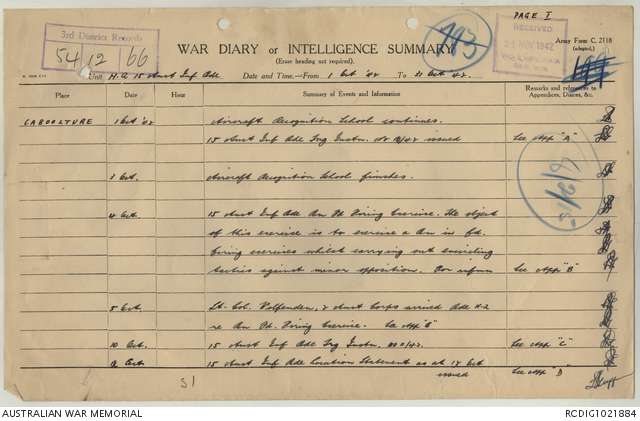 PAGE I
3rd District Records
54 12 66
493
RECEIVED
21 NOV 1942
Army Form C. 2118
(adapted.)
WAR DIARY or INTELLIGENCE SUMMARY
(Erase heading not required).
Unit H.Q. 15 Aust Inf Bde Date and Time.—From 1 Oct '42 To 31 Oct 42.
Place Date Hour Summary of Events and Information Remarks and references to Appendices, Diaries, &c.
CABOOLTURE 1 Oct '42 Aircraft Recognition School continues.
15 Aust Inf Bde Trg Instn. No 19/42 issued See App "A"
3 Oct. Aircraft Recognition School finishes.
4 Oct. 15 Aust Inf Bde Bn Fd Firing Exercise. The object
of this exercise is to exercise a Bn in fd.
firing exercises whilst carrying out encircling
tactics against minor opposition. For See App "B"
5 Oct. Lt-Col. Wolfenden, 2 Aust Corps arrived Bde HQ
re Bn Fd. Firing Exercise. See App "B"
10 Oct. 15 Aust Inf Bde Trg Instn. See App "C"
15 Aust Inf Bde Location Statement as at 18 Oct
issued See App "D"
51
AUSTRALIAN WAR MEMORIAL
RCDIG1021884